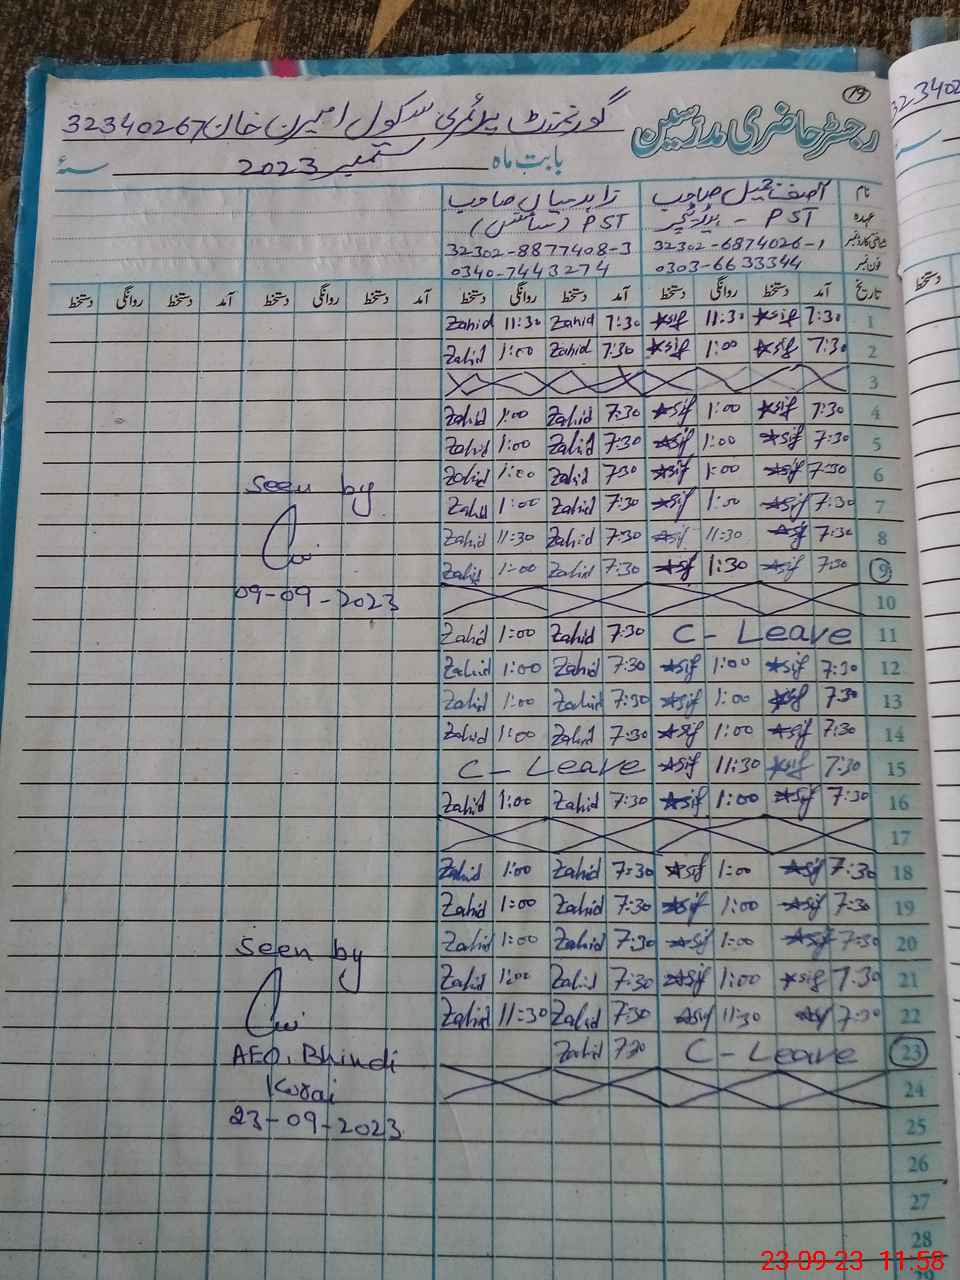 19
رجسٹر حاضری مدرسین
گورنمنٹ پرائمری سکول امیرن خان 32340267
بابت ماہ ستمبر 2023 سنہ
نام آصف جمیل صاحب زاہد میاں صاحب
عہدہ PST - ہیڈ ٹیچر PST (سائنس)
شناختی کارڈ نمبر 32302-6874026-1 32302-8877408-3
فون نمبر 0303-6633344 0340-7443274
تاریخ آمد دستخط روانگی دستخط آمد دستخط روانگی دستخط آمد دستخط روانگی دستخط آمد دستخط روانگی دستخط
1 7:30 Asif 11:30 Asif 7:30 Zahid 11:30 Zahid
2 7:30 Asif 1:00 Asif 7:30 Zahid 1:00 Zahid
3
4 7:30 Asif 1:00 Asif 7:30 Zahid 1:00 Zahid
5 7:30 Asif 1:00 Asif 7:30 Zahid 1:00 Zahid
6 7:30 Asif 1:00 Asif 7:30 Zahid 1:00 Zahid
Seen by
7 7:30 Asif 1:00 Asif 7:30 Zahid 1:00 Zahid
8 7:30 Asif 11:30 Asif 7:30 Zahid 11:30 Zahid
9 7:30 Asif 1:30 Asif 7:30 Zahid 1:00 Zahid
09-09-2023
10
11 C-Leave 7:30 Zahid 1:00 Zahid
12 7:30 Asif 1:00 Asif 7:30 Zahid 1:00 Zahid
13 7:30 Asif 1:00 Asif 7:30 Zahid 1:00 Zahid
14 7:30 Asif 1:00 Asif 7:30 Zahid 1:00 Zahid
15 7:30 Asif 11:30 Asif C-Leave
16 7:30 Asif 1:00 Asif 7:30 Zahid 1:00 Zahid
17
18 7:30 Asif 1:00 Asif 7:30 Zahid 1:00 Zahid
19 7:30 Asif 1:00 Asif 7:30 Zahid 1:00 Zahid
20 7:30 Asif 1:00 Asif 7:30 Zahid 1:00 Zahid
Seen by
21 7:30 Asif 1:00 Asif 7:30 Zahid 1:00 Zahid
22 7:30 Asif 11:30 Asif 7:30 Zahid 11:30 Zahid
23 C-Leave 7:30 Zahid
AEO, Bhindi
Korai
23-09-2023
24
25
26
27
28
23-09-23 11:58